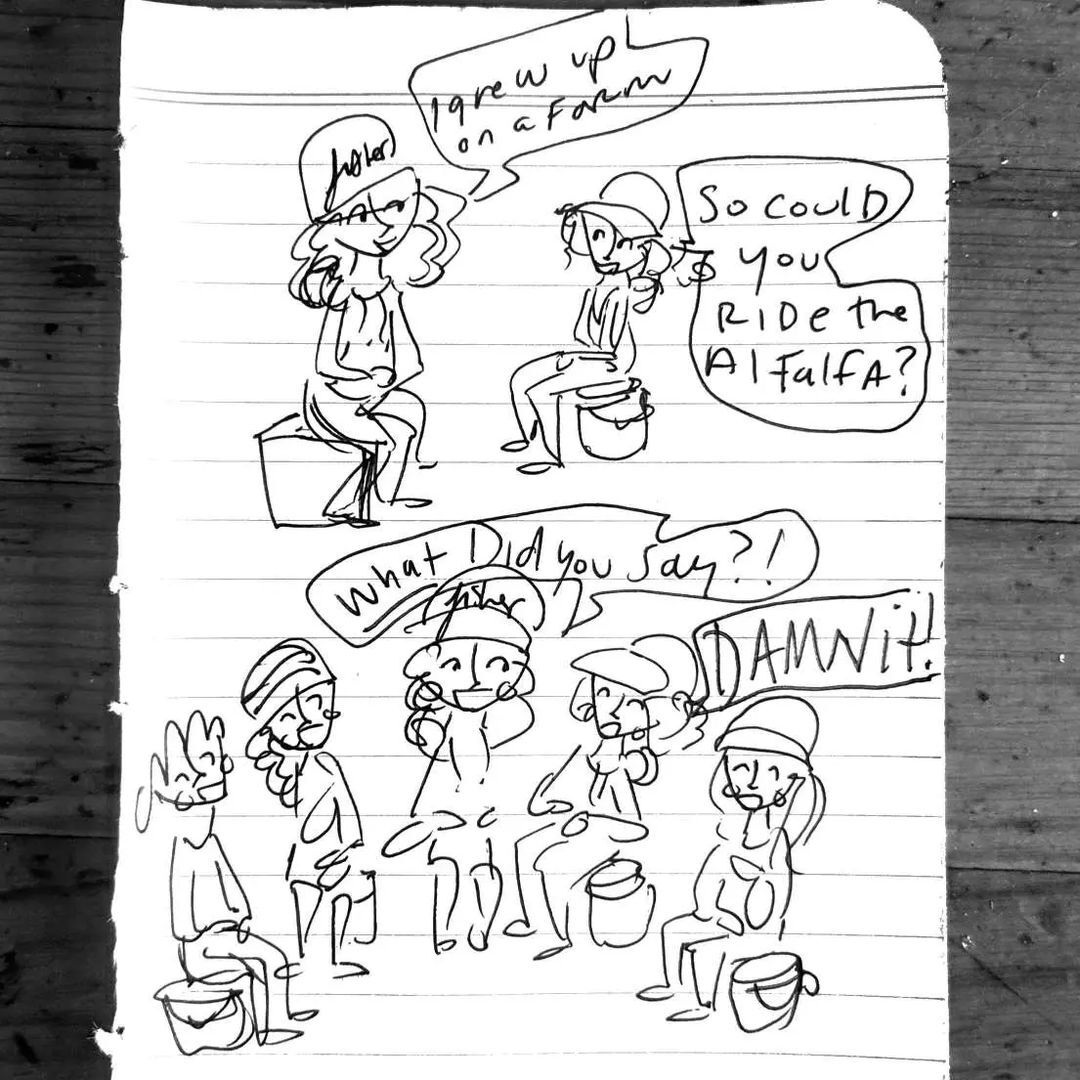 I grew up
on a Farm
fisher
So could
you
RIDe the
AlfalfA?
What Did you say?!
fisher
DAMNit!